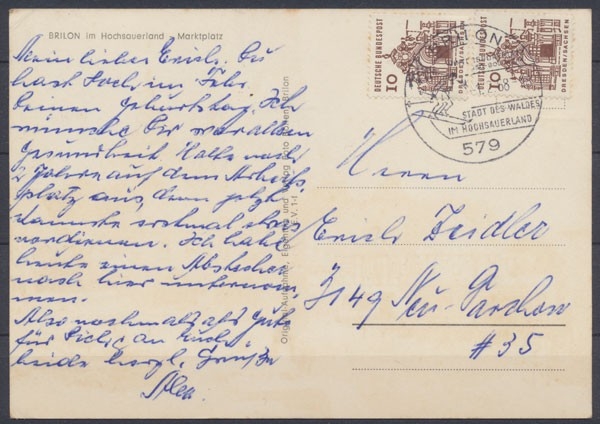 BRILON im Hochsauerland Marktplatz
Mein lieber Erich. Du
hast doch im Febr.
Deinen Geburtstag. Ich
wünsche Dir vor allem
Gesundheit. Halte noch
2 Jahre auf dem
platz aus, denn jetzt
erstmal etwas
verdienen. Ich habe
heute einen Abstecher
nach hier unternom
men.
Also nochmals alles Gute
für Dich, an Euch
beide herzl. Grüße
DEUTSCHE BUNDESPOST
10
DRESDEN/SACHSEN
DEUTSCHE BUNDESPOST
10
DRESDEN/SACHSEN
BRILON
68
STADT DES WALDES
IM HOCHSAUERLAND
579
Herrn
Erich Zeidler
3149 Neu-Darchau
#35